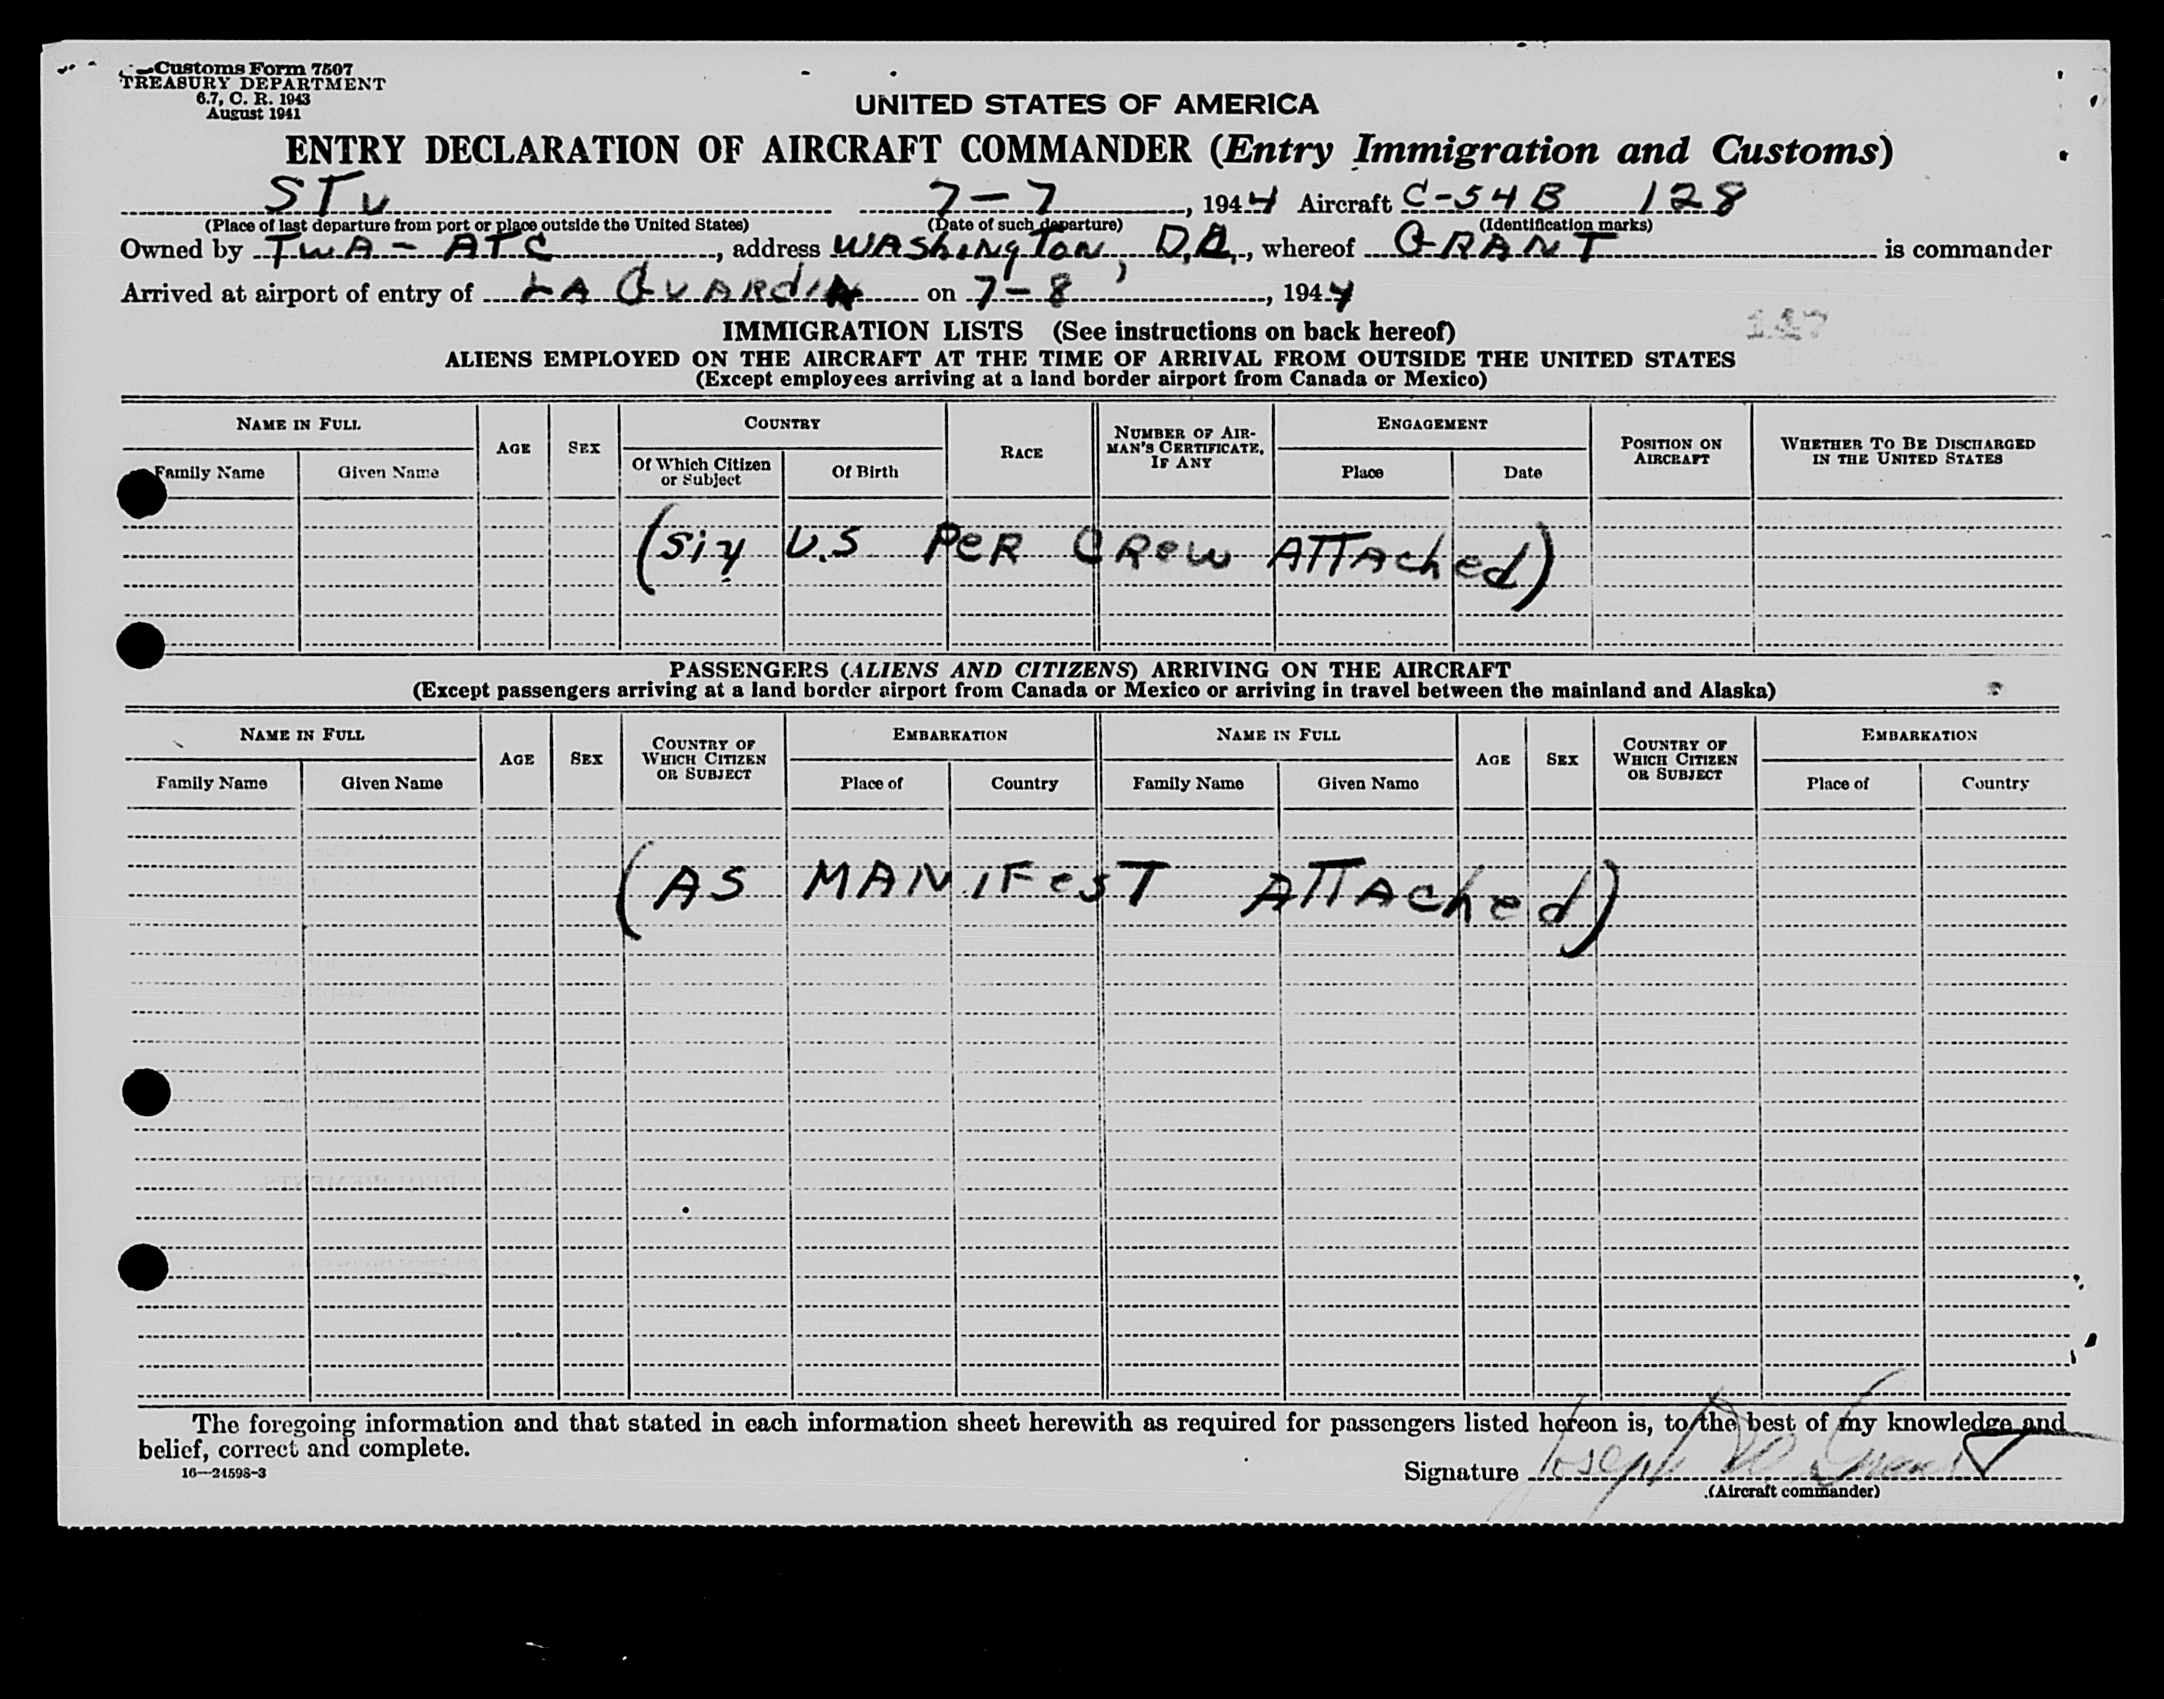 Customs Form 7507
TREASURY DEPARTMENT
6.7, C. R. 1943
August 1941
UNITED STATES OF AMERICA
ENTRY DECLARATION OF AIRCRAFT COMMANDER (Entry Immigration and Customs)
STV 7-7, 1944 Aircraft C-54B 128
(Place of last departure from port or place outside the United States) (Date of such departure) (Identification marks)
Owned by TWA-ATC, address WAShINgTON, D.C., whereof GRANT is commander
Arrived at airport of entry of LA GUARdIA on 7-8, 1944
IMMIGRATION LISTS (See instructions on back hereof)
127
ALIENS EMPLOYED ON THE AIRCRAFT AT THE TIME OF ARRIVAL FROM OUTSIDE THE UNITED STATES
(Except employees arriving at a land border airport from Canada or Mexico)
NAME IN FULL AGE SEX COUNTRY RACE NUMBER OF AIRMAN'S CERTIFICATE, IF ANY ENGAGEMENT POSITION ON AIRCRAFT WHETHER TO BE DISCHARGED IN THE UNITED STATES
Family Name Given Name Of Which Citizen or Subject Of Birth Place Date
(Six U.S PeR CRew ATTAched)
PASSENGERS (ALIENS AND CITIZENS) ARRIVING ON THE AIRCRAFT
(Except passengers arriving at a land border airport from Canada or Mexico or arriving in travel between the mainland and Alaska)
NAME IN FULL AGE SEX COUNTRY OF WHICH CITIZEN OR SUBJECT EMBARKATION NAME IN FULL AGE SEX COUNTRY OF WHICH CITIZEN OR SUBJECT EMBARKATION
Family Name Given Name Place of Country Family Name Given Name Place of Country
(AS MANIFesT ATTAched)
The foregoing information and that stated in each information sheet herewith as required for passengers listed hereon is, to the best of my knowledge and
belief, correct and complete.
16—24598-3
Signature Joseph W Grant
(Aircraft commander)